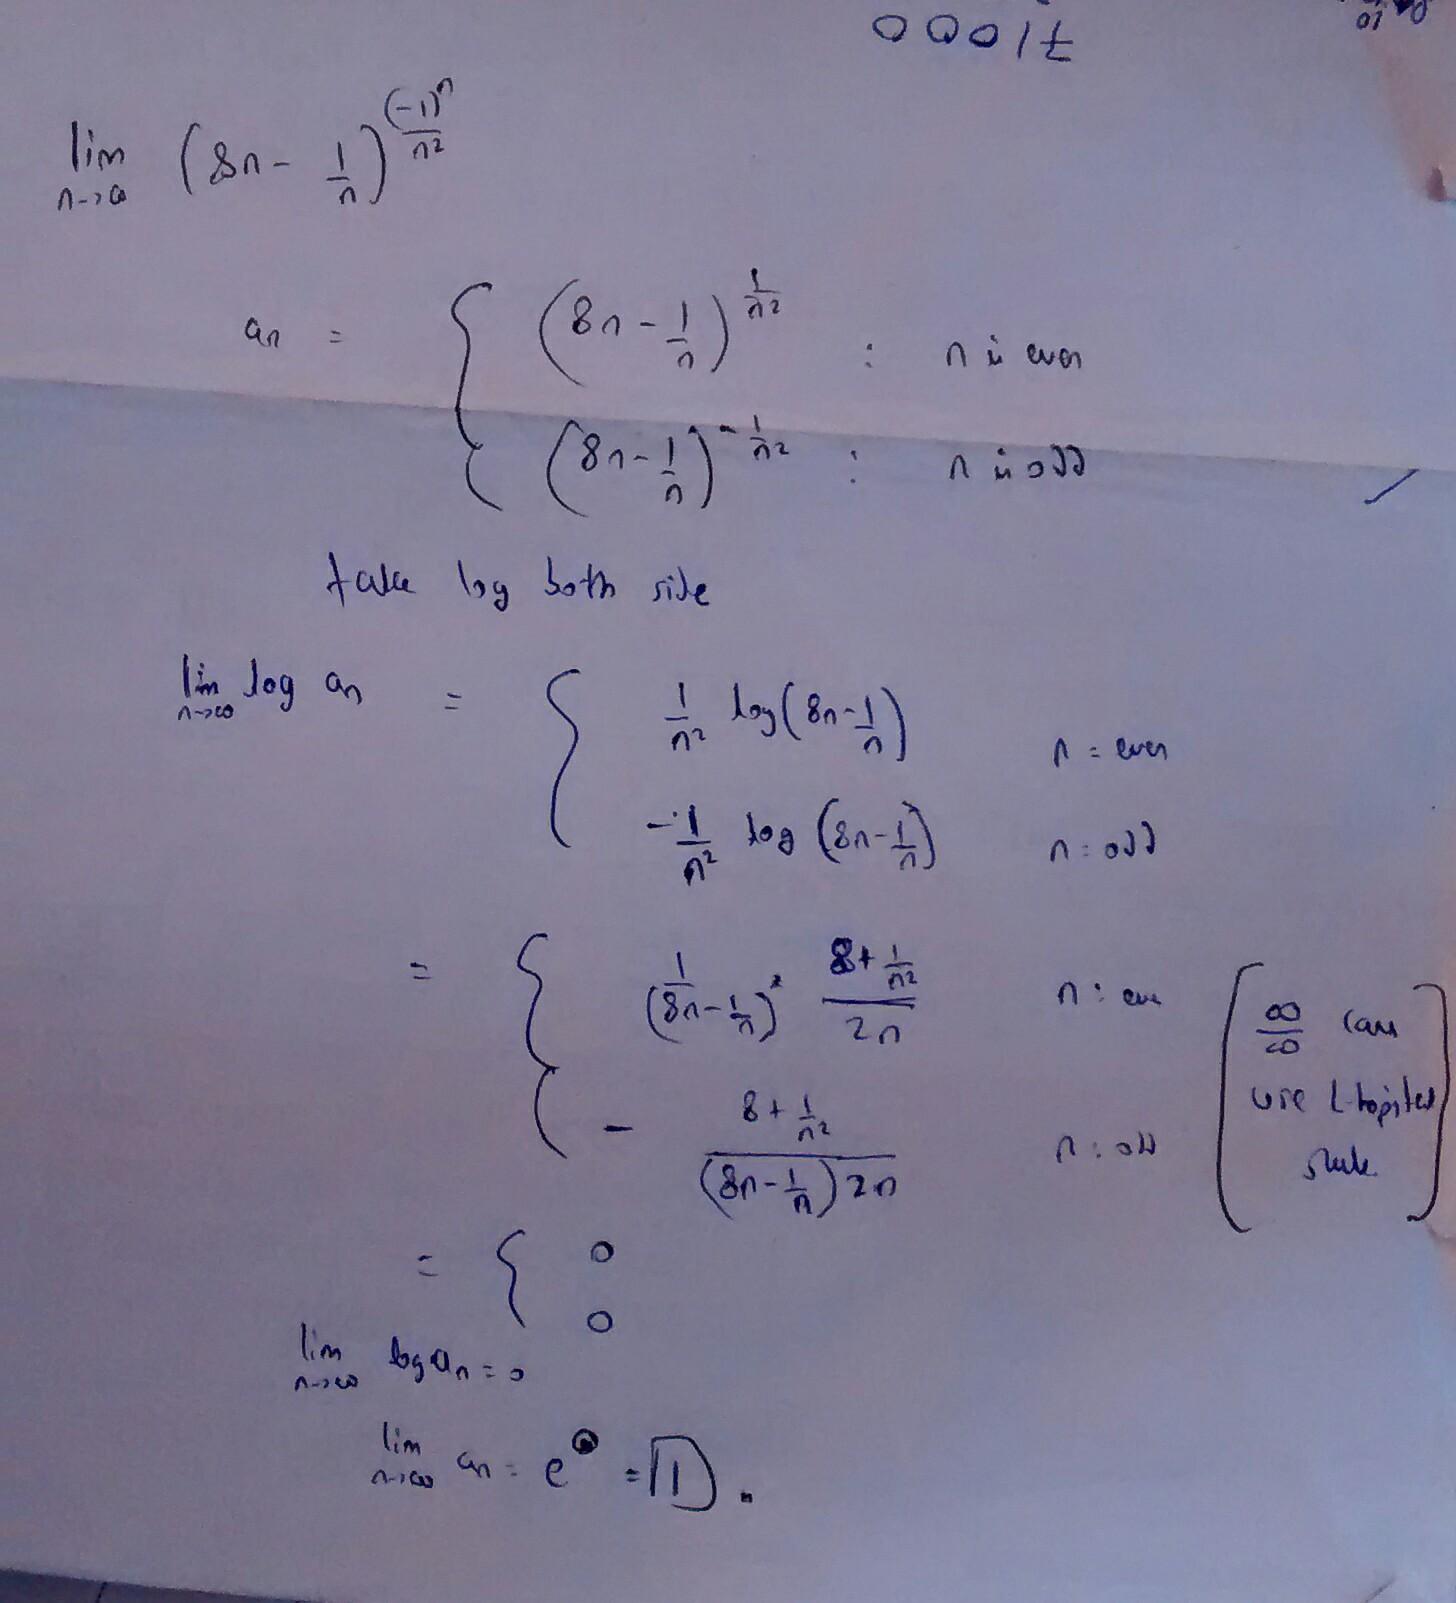 71000
lim n->∞ (8n - 1/n)^((-1)^n/n^2)
an = { (8n - 1/n)^(1/n^2) : n is even
(8n - 1/n)^(-1/n^2) : n is odd
take log both side
lim n->∞ log an = { 1/n^2 log(8n - 1/n) n = even
-1/n^2 log(8n - 1/n) n = odd
= { 1/(8n - 1/n) (8 + 1/n^2)/2n n : eve
- (8 + 1/n^2)/((8n - 1/n) 2n) n : odd
[∞/∞ can
use L-hopital
rule]
= { 0
0
lim n->∞ log an = 0
lim n->∞ an = e^0 = 1.